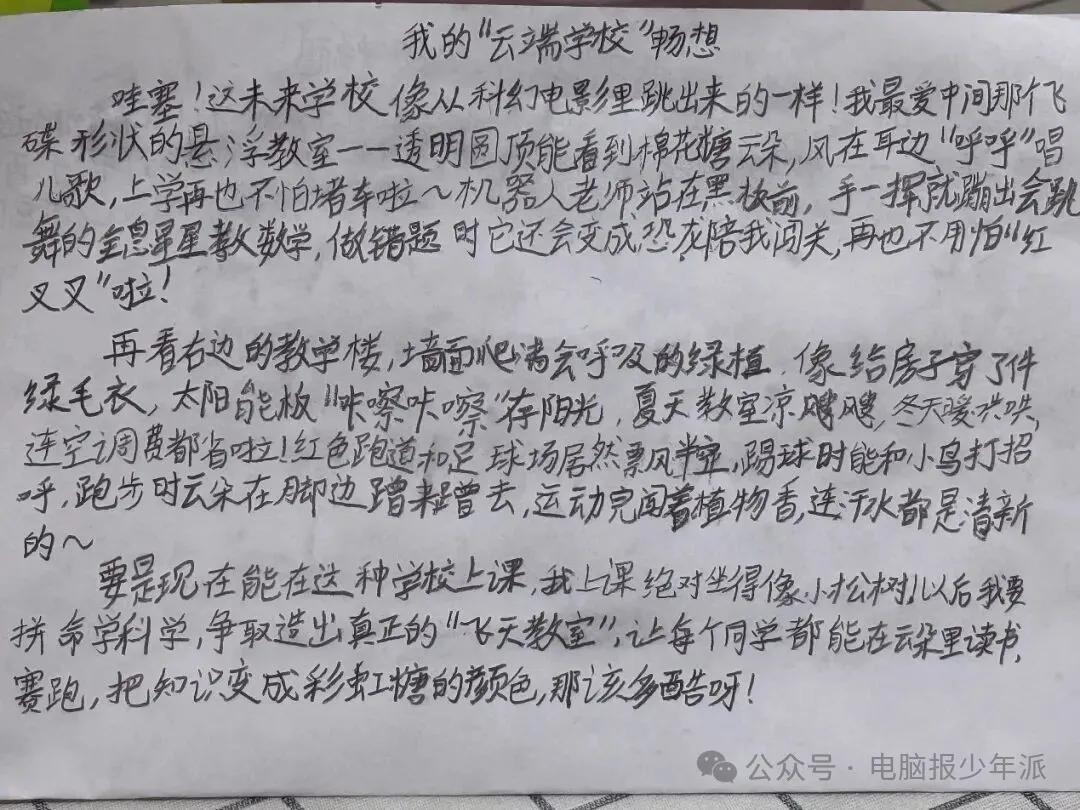 我的“云端学校”畅想
哇塞！这未来学校像从科幻电影里跳出来的一样！我最爱中间那个飞
碟形状的悬浮教室——透明圆顶能看到棉花糖云朵，风在耳边“呼呼”唱
儿歌，上学再也不怕堵车啦～机器人老师站在黑板前，手一挥就蹦出会跳
舞的全息星星教数学，做错题时它还会变成恐龙陪我闯关，再也不用怕“红
叉叉”啦！
再看右边的教学楼，墙面爬满会呼吸的绿植，像给房子穿了件
绿毛衣，太阳能板“咔嚓咔嚓”存阳光，夏天教室凉飕飕，冬天暖烘烘，
连空调费都省啦！红色跑道和足球场居然飘半空，踢球时能和小鸟打招
呼，跑步时云朵在脚边蹭来蹭去，运动完闻着植物香，连汗水都是清新
的～
要是现在能在这种学校上课，我上课绝对坐得像小松树！以后我要
拼命学科学，争取造出真正的“飞天教室”，让每个同学都能在云朵里读书，
赛跑，把知识变成彩虹糖的颜色，那该多酷呀！
公众号·电脑报少年派